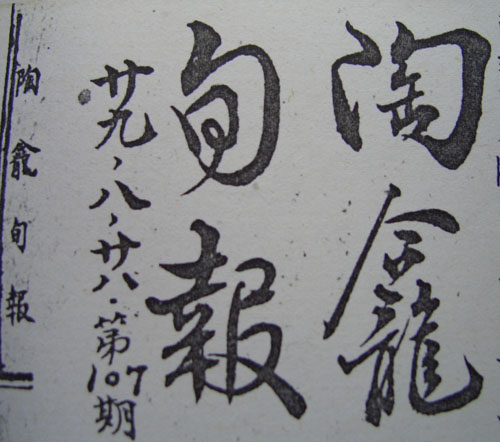 陶龕
旬報
廿九、八、廿八·第107期
陶龕旬報